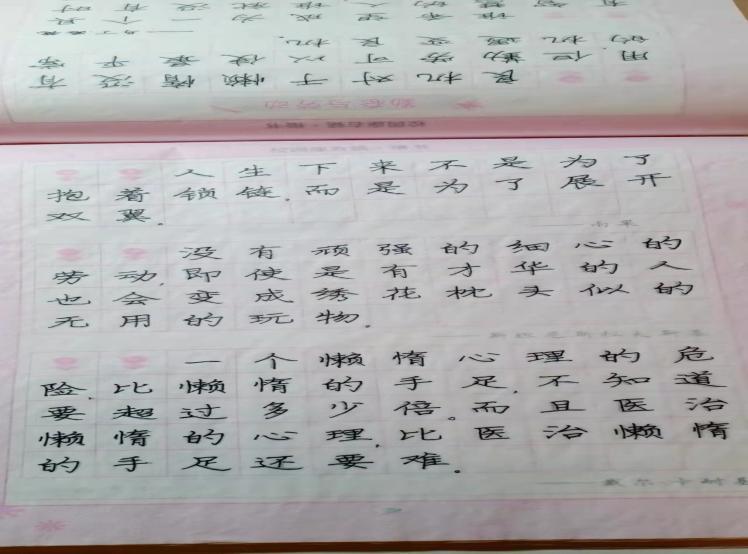 勤奋与劳动
良机对于懒惰没有
用,但勤劳可以使最平常
的机遇变良机。
人生下来不是为了
抱着锁链,而是为了展开
双翼。
——雨果
没有顽强的细心的
劳动,即使是有才华的人
也会变成绣花枕头似的
无用的玩物。
一个懒惰心理的危
险,比懒惰的手足,不知道
要超过多少倍。而且医治
懒惰的心理,比医治懒惰
的手足还要难。